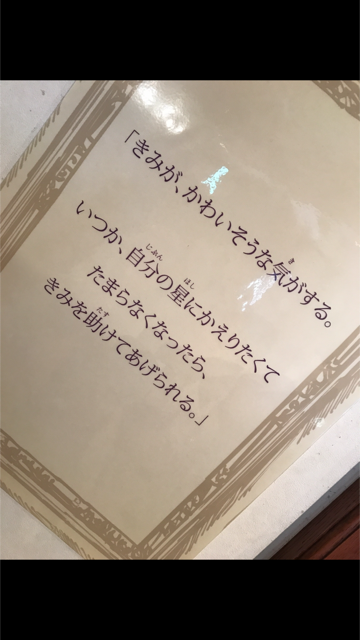 「きみが、かわいそうな気がする。
いつか、自分の星にかえりたくて
たまらなくなったら、
きみを助けてあげられる。」